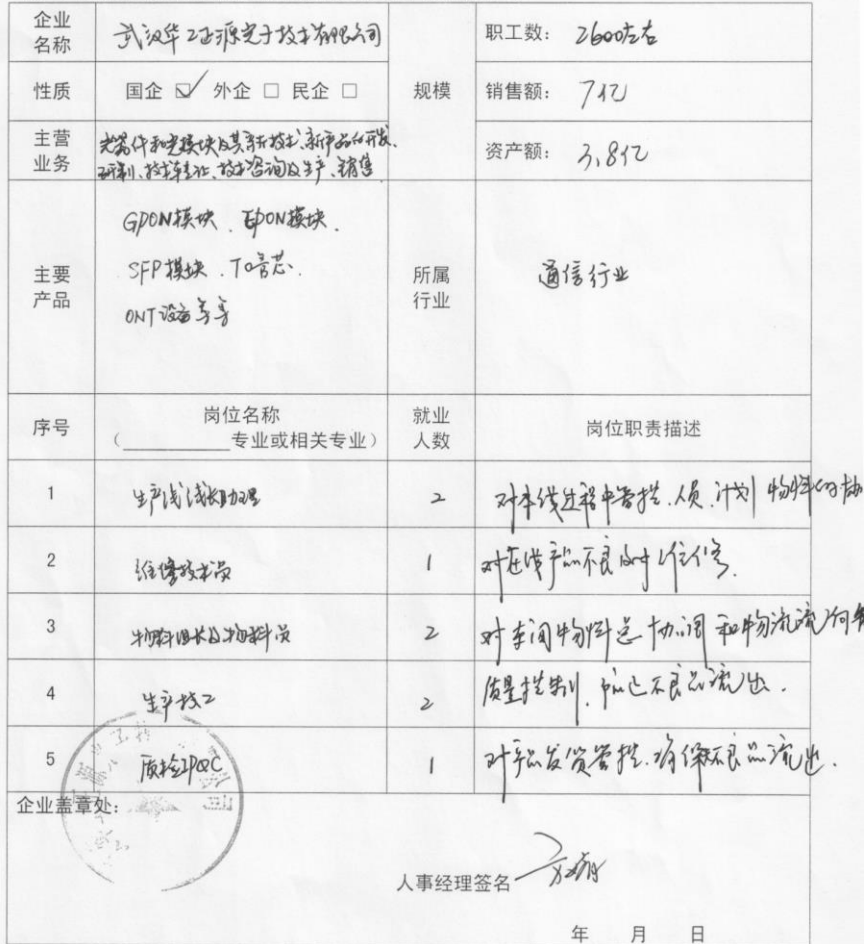 企业名称 武汉华工正源光子技术有限公司 职工数: 2600左右
性质 国企 ☑ 外企 □ 民企 □ 规模 销售额: 7亿
主营业务 光器件和光模块及其新技术、新产品的开发、
研制、技术转让、技术咨询及生产、销售 资产额: 3.8亿
主要产品 GPON模块、EPON模块、
SFP模块、TO管芯、
ONT设备等等
所属行业 通信行业
序号 岗位名称 就业人数 岗位职责描述
(________专业或相关专业)
1 生产线线长助理 2 对本线过程中管控、人员、计划 物料的协
2 维修技术员 1 对在线产品不良及时维修.
3 物料组长及物料员 2 对车间物料总协调和物流流向
4 生产技工 2 质量控制,防止不良品流出.
5 质检IPQC 1 对产品发货管控,确保不良品流出.
企业盖章处:
人事经理签名
年 月 日